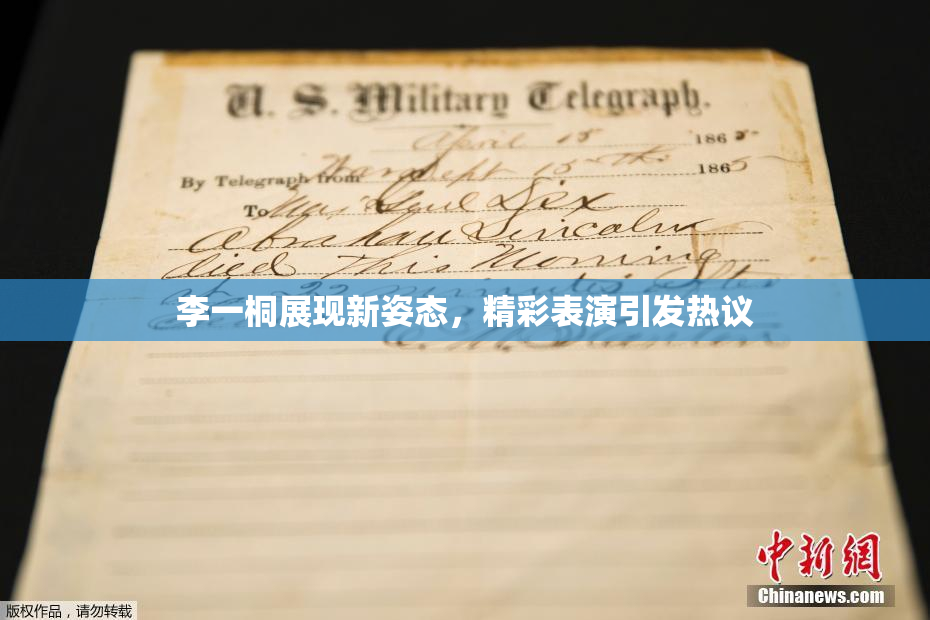 U. S. Military Telegraph.
April 15 1865
By Telegraph from War Dept 15th 1865
To Maj Genl Dix
Abraham Lincoln
died This Morning
at 22 minutes after
李一桐展现新姿态，精彩表演引发热议
E. M. Stanton
中新网
Chinanews.com
版权作品，请勿转载